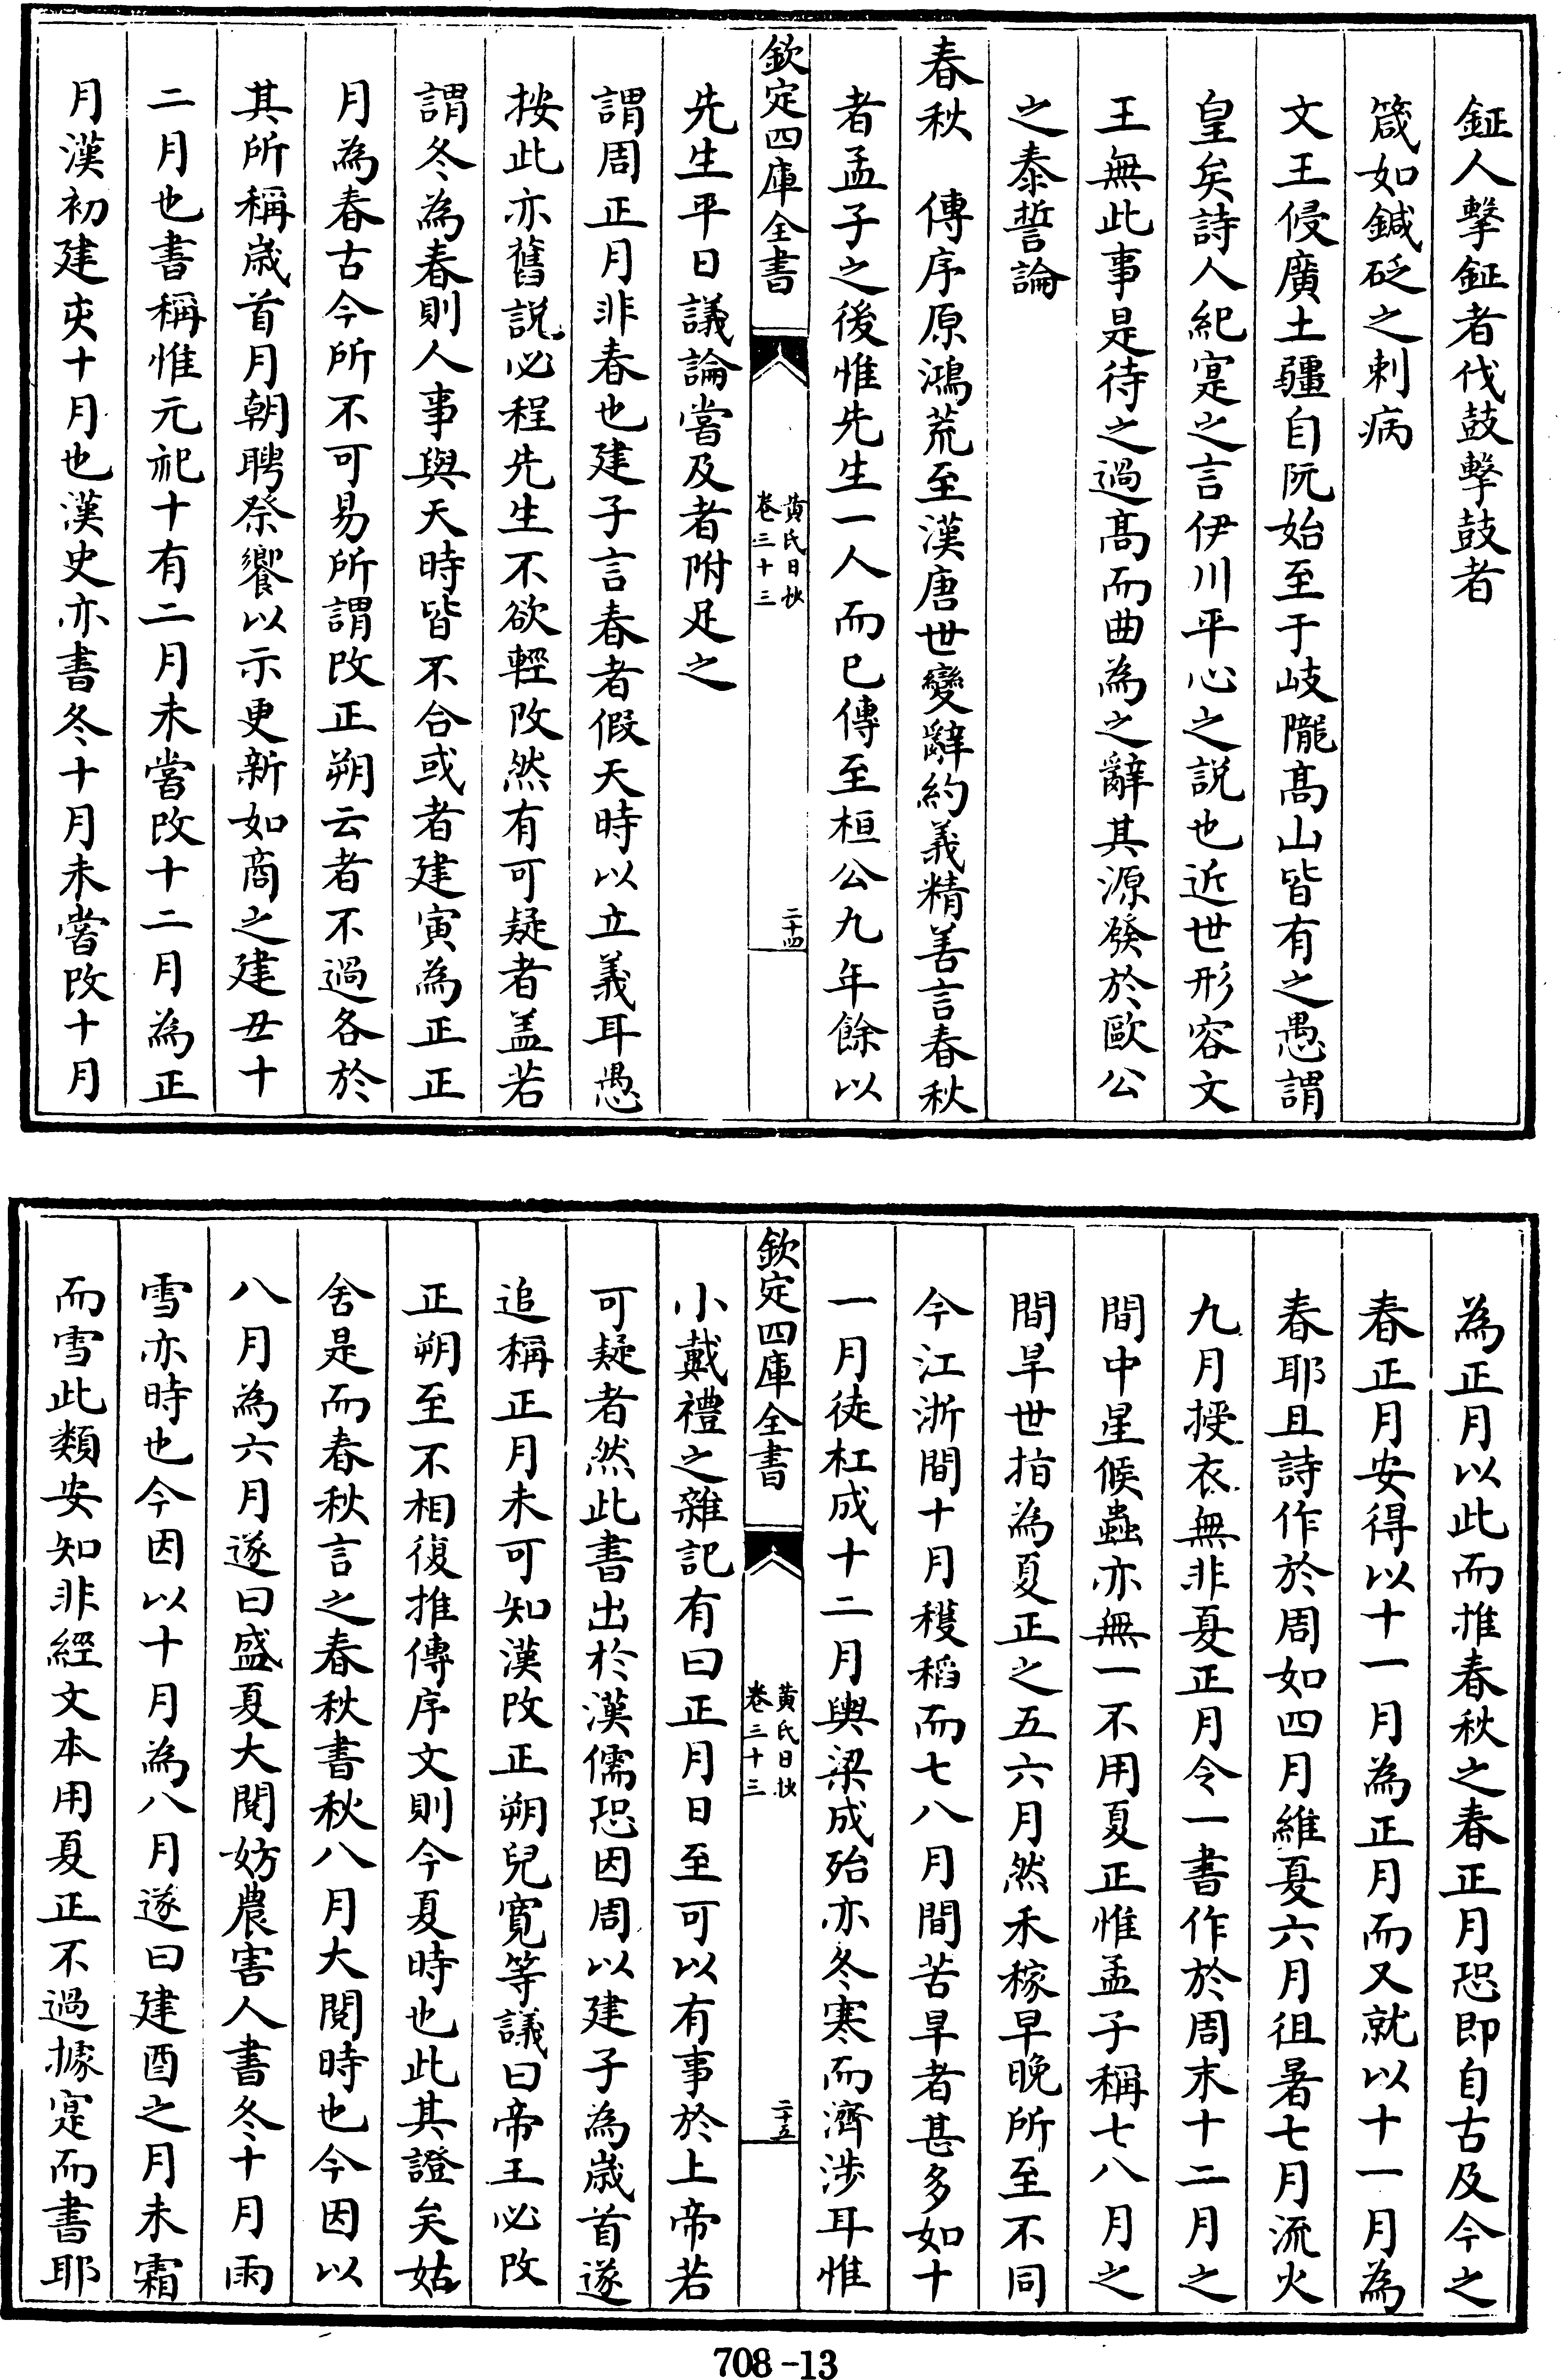 鉦人擊鉦者伐鼓擊鼓者
箴如鍼砭之刺病
文王侵廣土疆自阮始至于岐隴髙山皆有之愚謂
皇矣詩人紀寔之言伊川平心之説也近世形容文
王無此事是待之過髙而曲為之辭其源發於歐公
之泰誓論
春秋　傳序原鴻荒至漢唐世變辭約義精善言春秋
者孟子之後惟先生一人而已傳至桓公九年餘以
欽定四庫全書
黄氏日抄
卷三十三
二十四
先生平日議論嘗及者附足之
謂周正月非春也建子言春者假天時以立義耳愚
按此亦舊説必程先生不欲輕改然有可疑者盖若
謂冬為春則人事與天時皆不合或者建寅為正正
月為春古今所不可易所謂改正朔云者不過各於
其所稱嵗首月朝聘祭饗以示更新如商之建丑十
二月也書稱惟元祀十有二月未嘗改十二月為正
月漢初建亥十月也漢史亦書冬十月未嘗改十月
為正月以此而推春秋之春正月恐即自古及今之
春正月安得以十一月為正月而又就以十一月為
春耶且詩作於周如四月維夏六月徂暑七月流火
九月授衣無非夏正月令一書作於周末十二月之
間中星候蟲亦無一不用夏正惟孟子稱七八月之
間旱世指為夏正之五六月然禾稼早晚所至不同
今江浙間十月穫稻而七八月間苦旱者甚多如十
一月徒杠成十二月輿梁成殆亦冬寒而濟渉耳惟
欽定四庫全書
黄氏日抄
卷三十三
二十五
小戴禮之雜記有曰正月日至可以有事於上帝若
可疑者然此書出於漢儒恐因周以建子為嵗首遂
追稱正月未可知漢改正朔兒寛等議曰帝王必改
正朔至不相復推傳序文則今夏時也此其證矣姑
舍是而春秋言之春秋書秋八月大閲時也今因以
八月為六月遂曰盛夏大閲妨農害人書冬十月雨
雪亦時也今因以十月為八月遂曰建酉之月未霜
而雪此類安知非經文本用夏正不過據寔而書耶
708-13